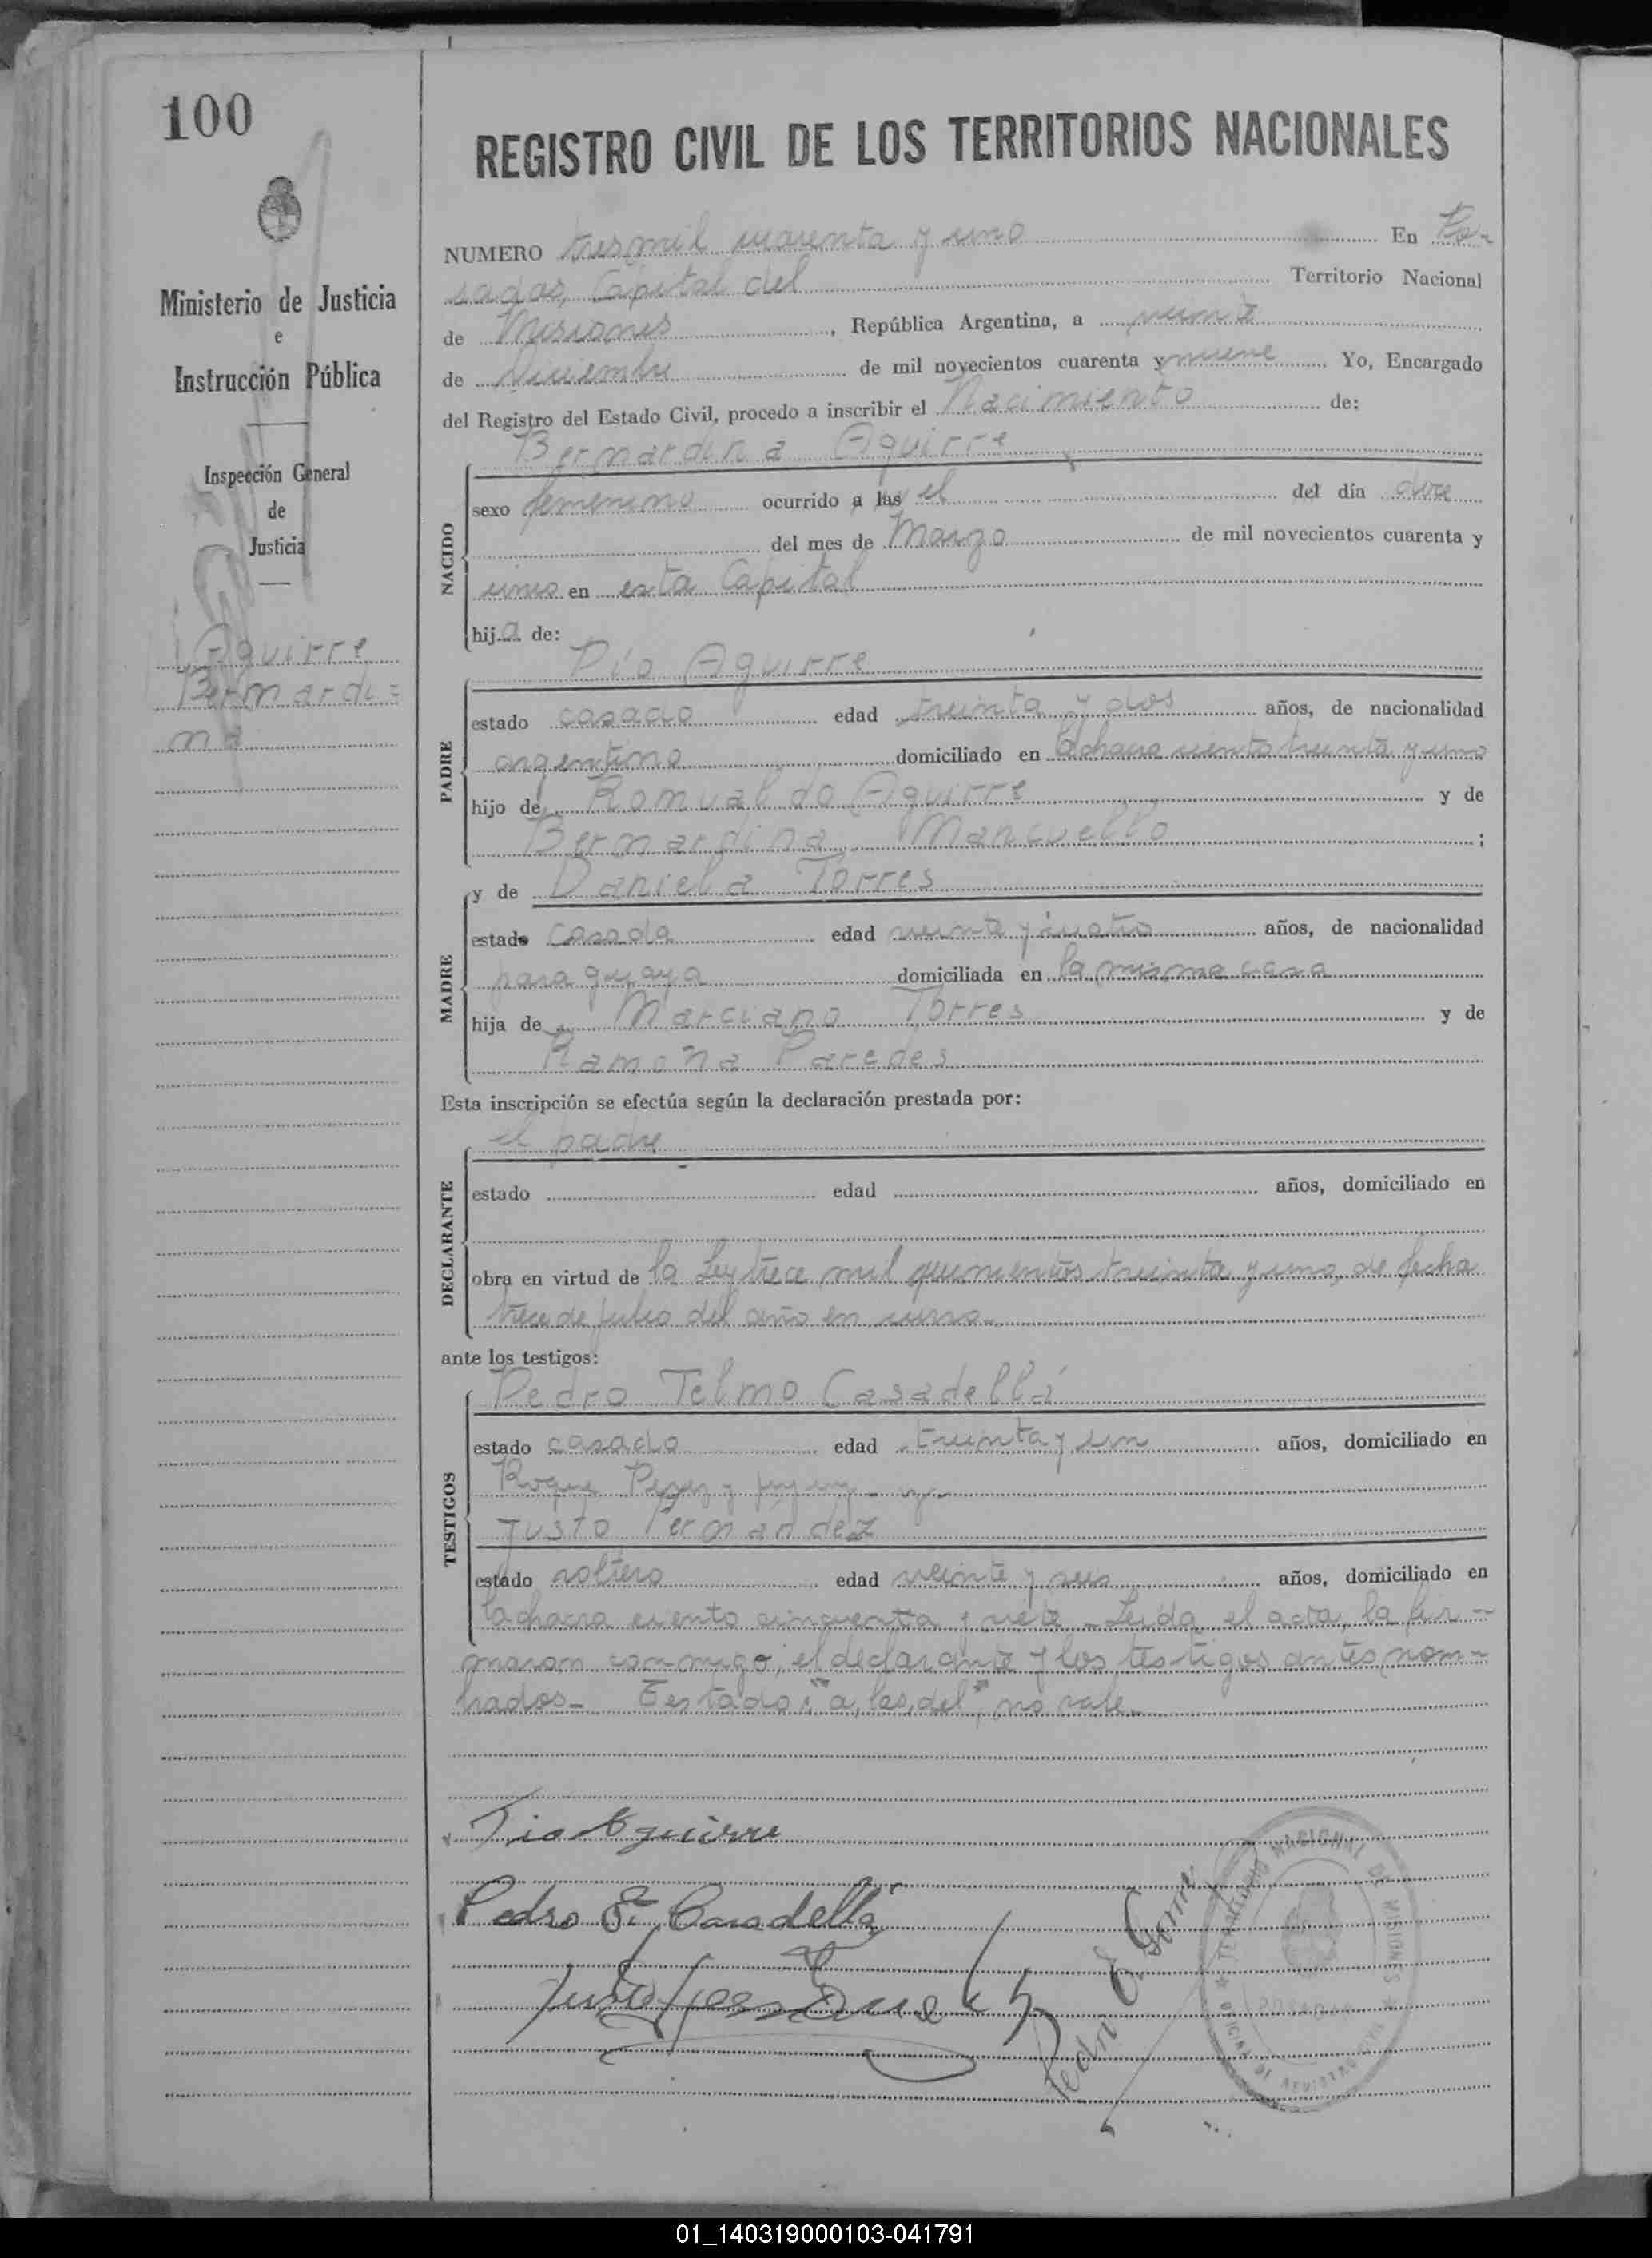 100
REGISTRO CIVIL DE LOS TERRITORIOS NACIONALES
Ministerio de Justicia
e
Instrucción Pública
Inspección General
de
Justicia
Aguirre
Bernardi=
na
NUMERO tres mil cuarenta y uno En Po-
sadas, Capital del Territorio Nacional
de Misiones, República Argentina, a veinte
de Diciembre de mil novecientos cuarenta y nueve Yo, Encargado
del Registro del Estado Civil, procedo a inscribir el Nacimiento de:
Bernardina Aguirre
NACIDO
sexo femenino ocurrido a las el del día doce
del mes de Marzo de mil novecientos cuarenta y
uno en esta Capital
hija de:
Pío Aguirre
PADRE
estado casado edad treinta y dos años, de nacionalidad
argentino domiciliado en la chacra ciento treinta y uno
hijo de Romualdo Aguirre y de
Bernardina Mancuello;
y de Daniela Torres
MADRE
estado casada edad veinte y cuatro años, de nacionalidad
paraguaya domiciliada en la misma casa
hija de Marciano Torres y de
Ramona Paredes
Esta inscripción se efectúa según la declaración prestada por:
el padre
DECLARANTE
estado edad años, domiciliado en
obra en virtud de la Ley trece mil quinientos treinta y uno, de fecha
trece de julio del año en curso-
ante los testigos:
Pedro Telmo Casadellá
TESTIGOS
estado casado edad treinta y un años, domiciliado en
Roque Perez y Jujuy - y -
Justo Fernandez
estado soltero edad veinte y seis años, domiciliado en
la chacra ciento cincuenta y siete - Leida el acta, la fir-
maron conmigo, el declarante y los testigos antes nom-
brados- Testado: "a, las, del", no vale-
Pio Aguirre
Pedro T. Casadellá
Justo Fernandez
TERRITORIO NACIONAL DE MISIONES
OFICINA DE REGISTRO CIVIL
01_140319000103-041791